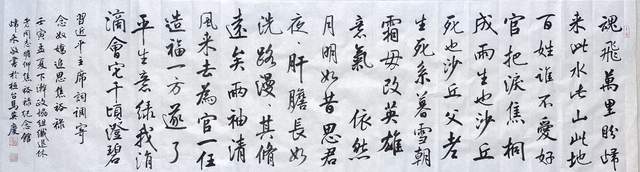 魂飛萬里盼歸
来此水此山此地
百姓誰不愛好
官把淚焦桐
成雨生也沙丘
死也沙丘父老
生死系暮雪朝
霜毋改英雄
意氣 依然
月明如昔思君
夜〻肝膽長如
洗路漫〻其脩
遠矣兩袖清
風来去為官一任
造福一方遂了
平生意綠我涓
滴會它千頃澄碧
習近平主席詞調寄
念奴嬌追思焦裕祿
壬寅孟夏下澣政協組織退休
老同志瞻仰焦裕祿紀念館
歸来敬書於桓台馬英慶